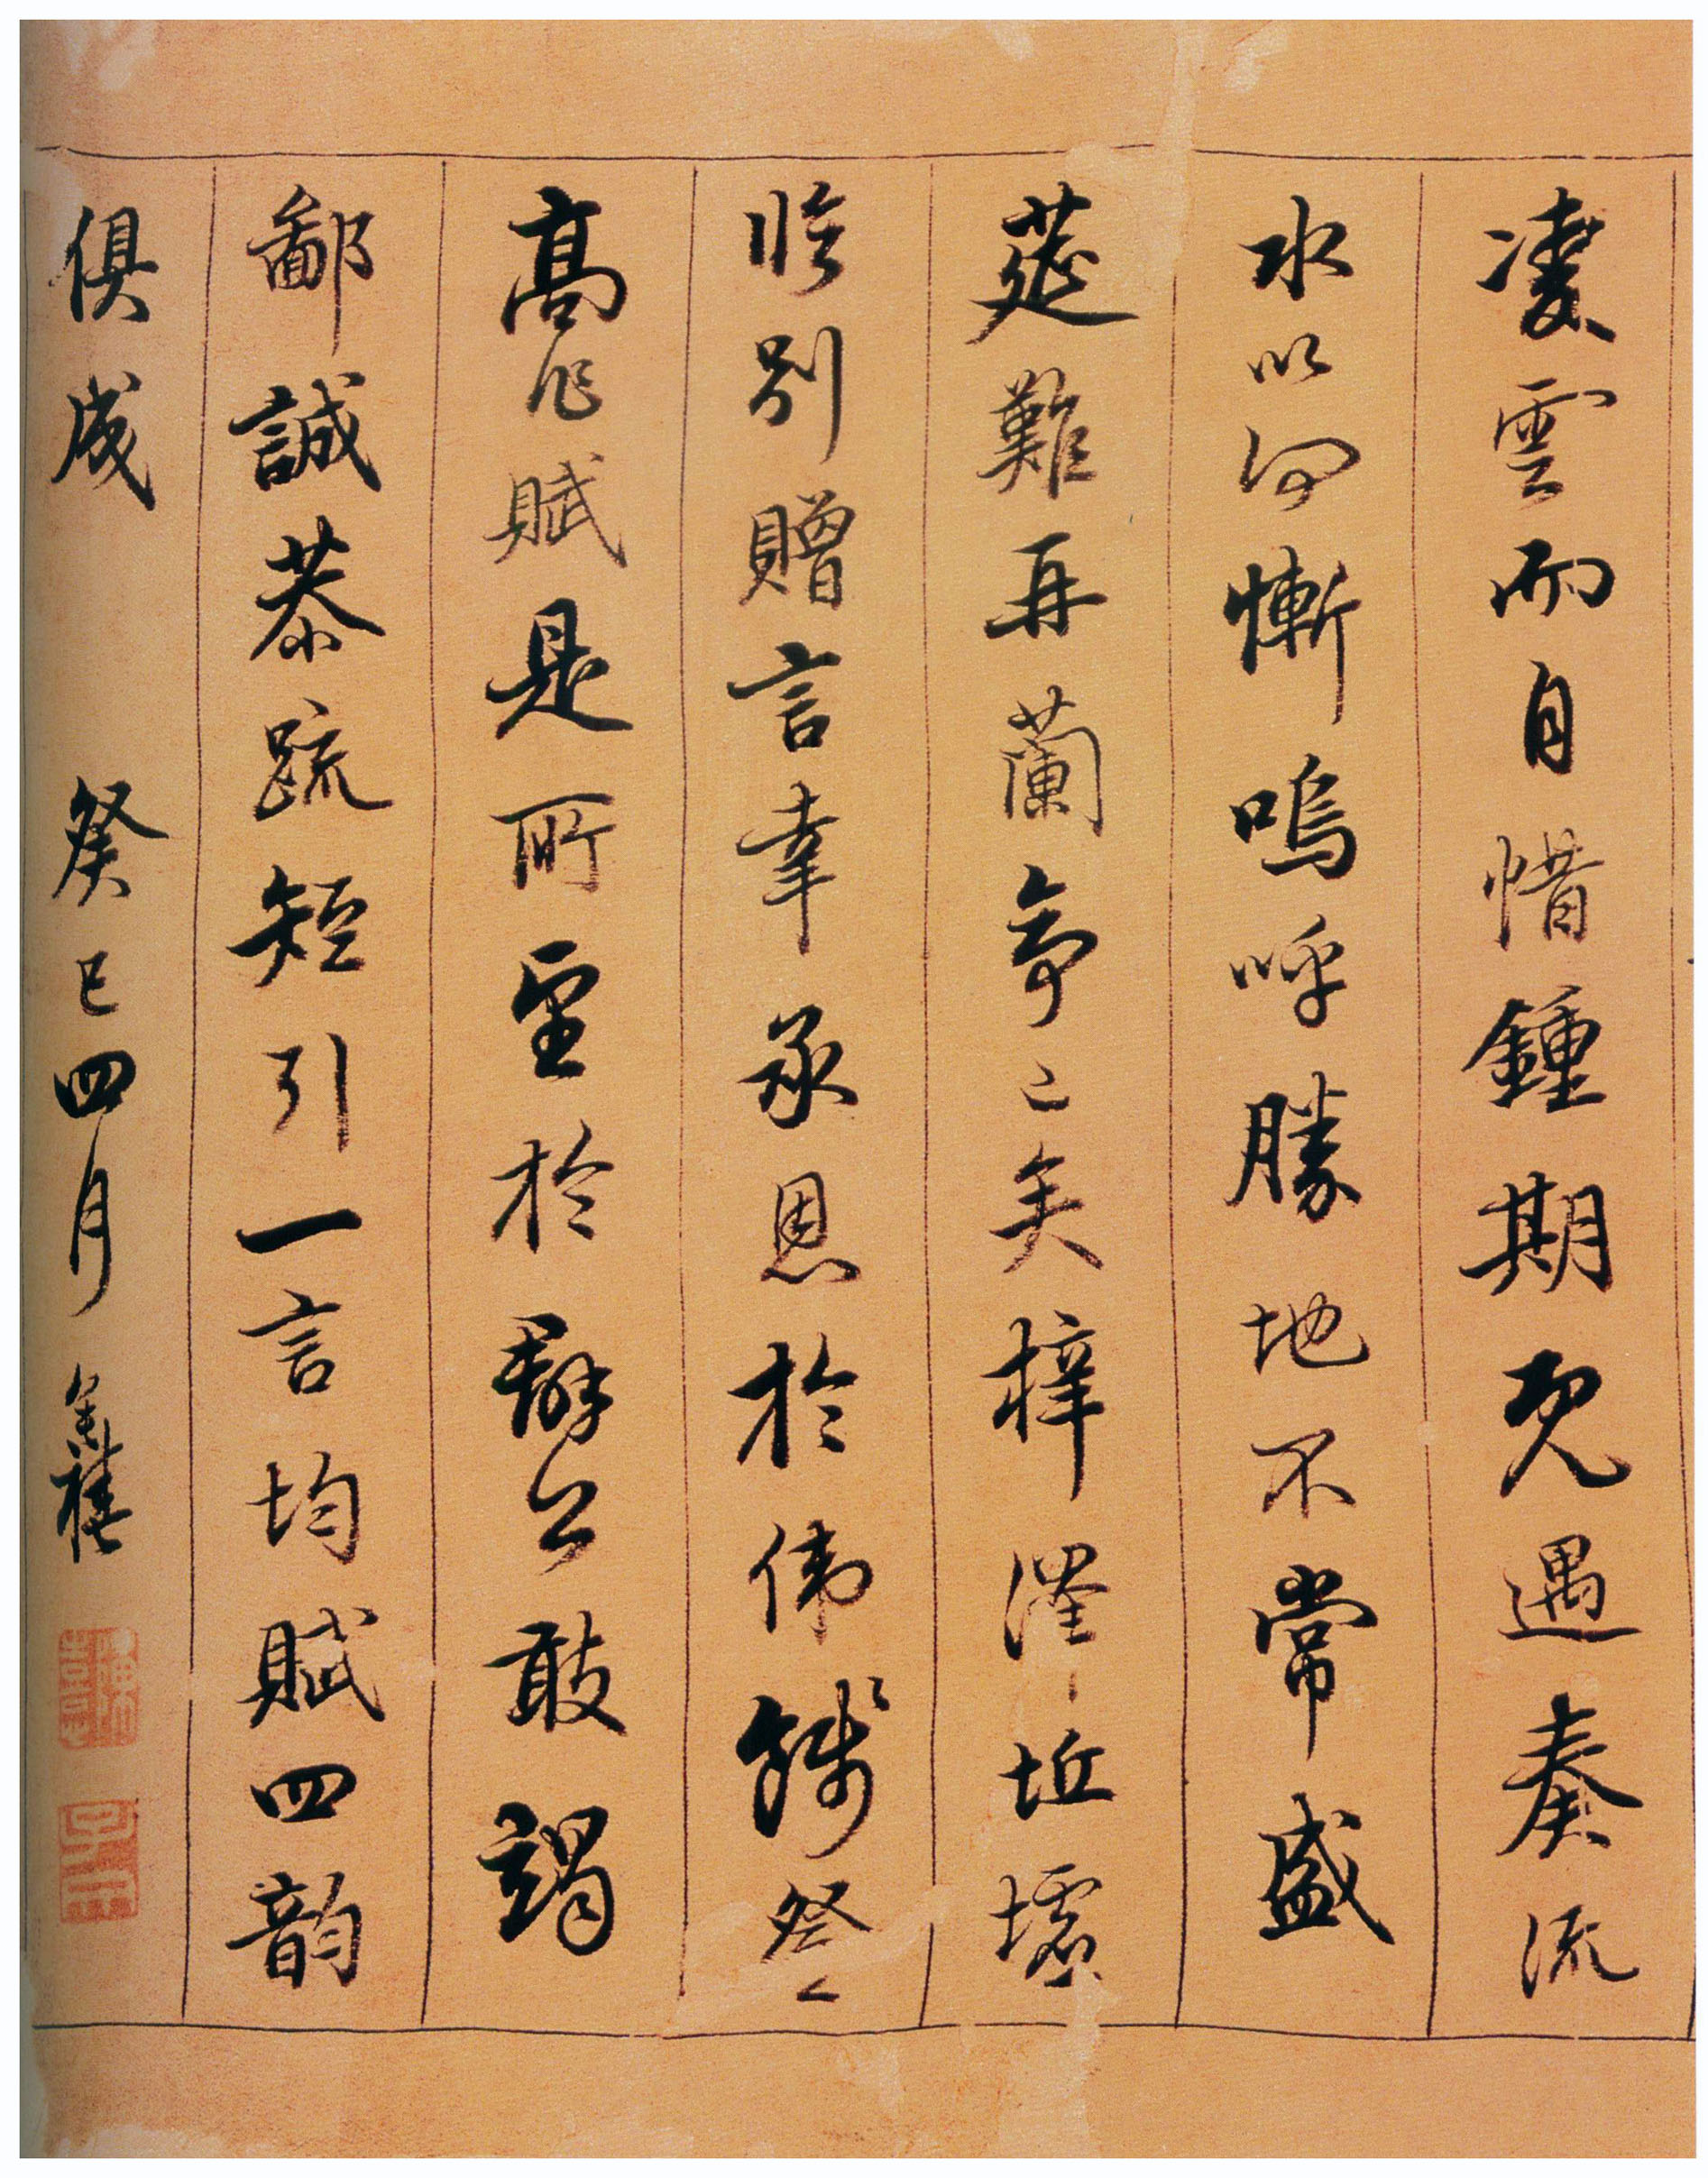 凌雲而自惜鍾期既遇奏流
水以何慚嗚呼勝地不常盛
莚難再蘭亭已矣梓澤坵墟
臨別贈言幸承恩於偉餞登
高作賦是所望於群公敢竭
鄙誠恭疏短引一言均賦四韻
俱成 癸巳四月